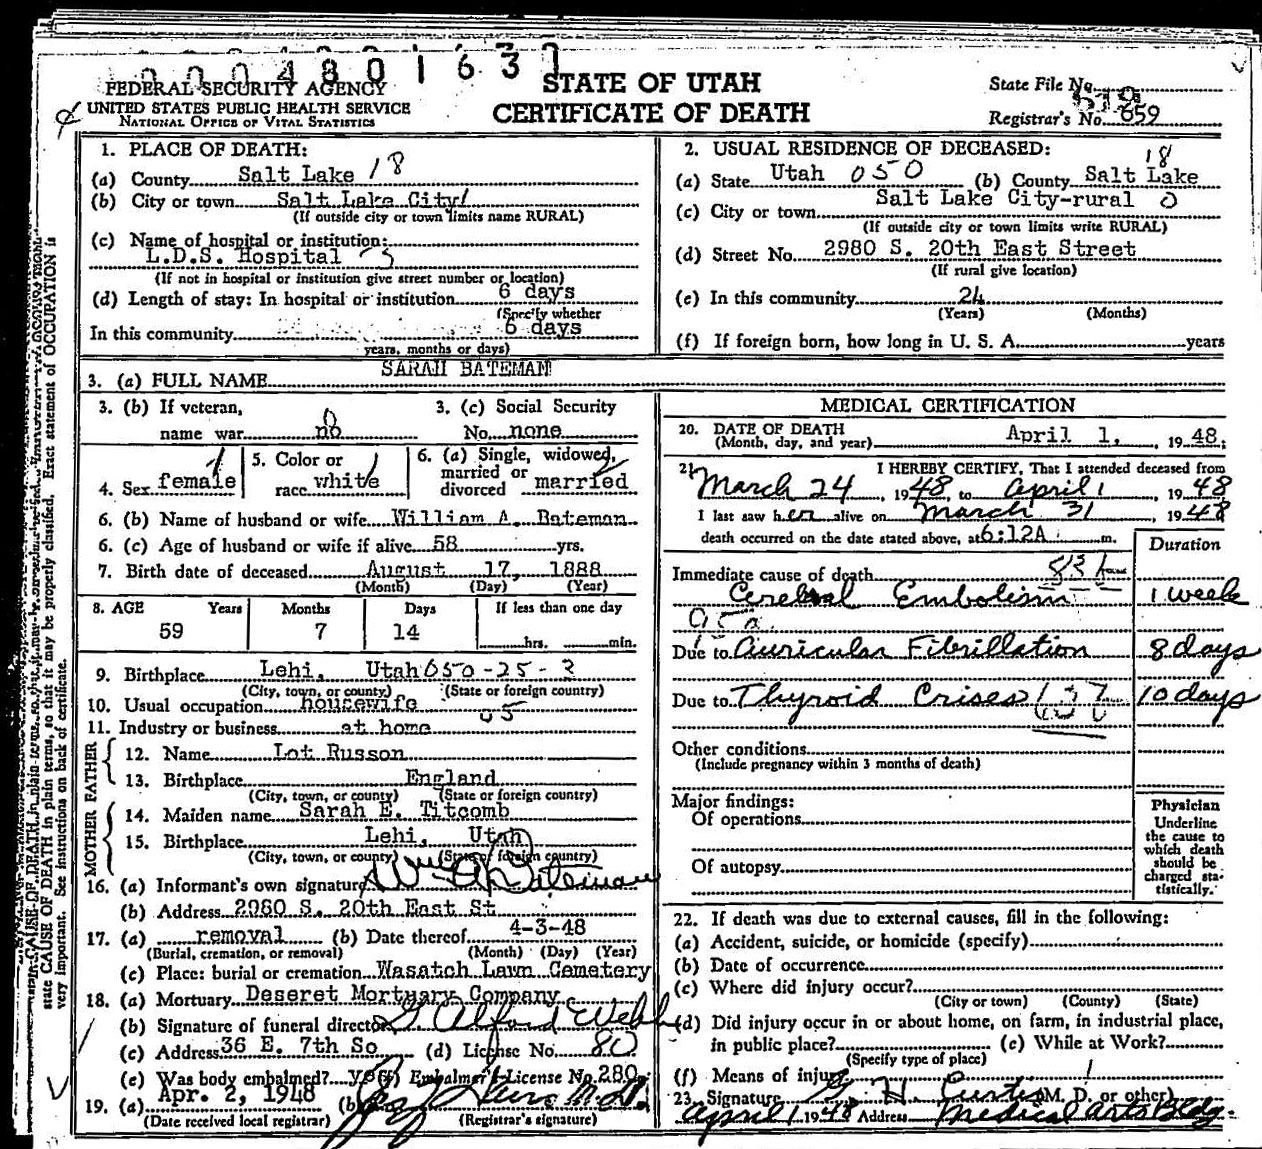 0004801637
FEDERAL SECURITY AGENCY
UNITED STATES PUBLIC HEALTH SERVICE
NATIONAL OFFICE OF VITAL STATISTICS
STATE OF UTAH
CERTIFICATE OF DEATH
State File No.
Registrar's No. 659
1. PLACE OF DEATH:
(a) County Salt Lake 18
(b) City or town Salt Lake City
(If outside city or town limits name RURAL)
(c) Name of hospital or institution:
L.D.S. Hospital
(If not in hospital or institution give street number or location)
(d) Length of stay: In hospital or institution 6 days
(Specify whether
In this community 6 days
years, months or days)
2. USUAL RESIDENCE OF DECEASED:
18
(a) State Utah 050 (b) County Salt Lake
(c) City or town Salt Lake City-rural 0
(If outside city or town limits write RURAL)
(d) Street No. 2980 S. 20th East Street
(If rural give location)
(e) In this community 24
(Years) (Months)
(f) If foreign born, how long in U. S. A. years
3. (a) FULL NAME SARAH BATEMAN
3. (b) If veteran, name war no
3. (c) Social Security No. none
4. Sex female
5. Color or race white
6. (a) Single, widowed, married or divorced married
6. (b) Name of husband or wife William A. Bateman
6. (c) Age of husband or wife if alive 58 yrs.
7. Birth date of deceased August 17, 1888
(Month) (Day) (Year)
8. AGE Years Months Days If less than one day
59 7 14 hrs. min.
9. Birthplace Lehi, Utah 050-25-
(City, town, or county) (State or foreign country)
10. Usual occupation housewife
11. Industry or business at home
FATHER
12. Name Lot Russon
13. Birthplace England
(City, town, or county) (State or foreign country)
MOTHER
14. Maiden name Sarah E. Titcomb
15. Birthplace Lehi, Utah
(City, town, or county) (State or foreign country)
16. (a) Informant's own signature Wm A Bateman
(b) Address 2980 S. 20th East St
17. (a) removal (b) Date thereof 4-3-48
(Burial, cremation, or removal) (Month) (Day) (Year)
(c) Place: burial or cremation Wasatch Lawn Cemetery
18. (a) Mortuary Deseret Mortuary Company
(b) Signature of funeral director Alford Webb
(c) Address 36 E. 7th So (d) License No. 80
(e) Was body embalmed? yes (f) Embalmer's License No. 280
19. (a) Apr. 2, 1948 (b) M.D.
(Date received local registrar) (Registrar's signature)
MEDICAL CERTIFICATION
20. DATE OF DEATH
(Month, day, and year) April 1, 1948;
21. I HEREBY CERTIFY, That I attended deceased from
March 24, 1948, to April 1, 1948
I last saw her alive on March 31, 1948
death occurred on the date stated above, at 6:12A m.
Duration
Immediate cause of death
Cerebral Embolism 1 week
Due to Auricular Fibrillation 8 days
Due to Thyroid Crises 10 days
Other conditions
(Include pregnancy within 3 months of death)
Major findings:
Of operations
Of autopsy
Physician
Underline
the cause to
which death
should be
charged sta-
tistically.
22. If death was due to external causes, fill in the following:
(a) Accident, suicide, or homicide (specify)
(b) Date of occurrence
(c) Where did injury occur?
(City or town) (County) (State)
(d) Did injury occur in or about home, on farm, in industrial place,
in public place? (e) While at Work?
(Specify type of place)
(f) Means of injury
23. Signature H. Curtis (M. D. or other)
April 1 1948 Address Medical Arts Bldg.
state CAUSE OF DEATH in plain terms, so that it may be properly classified. Exact statement of OCCUPATION is
very important. See instructions on back of certificate.